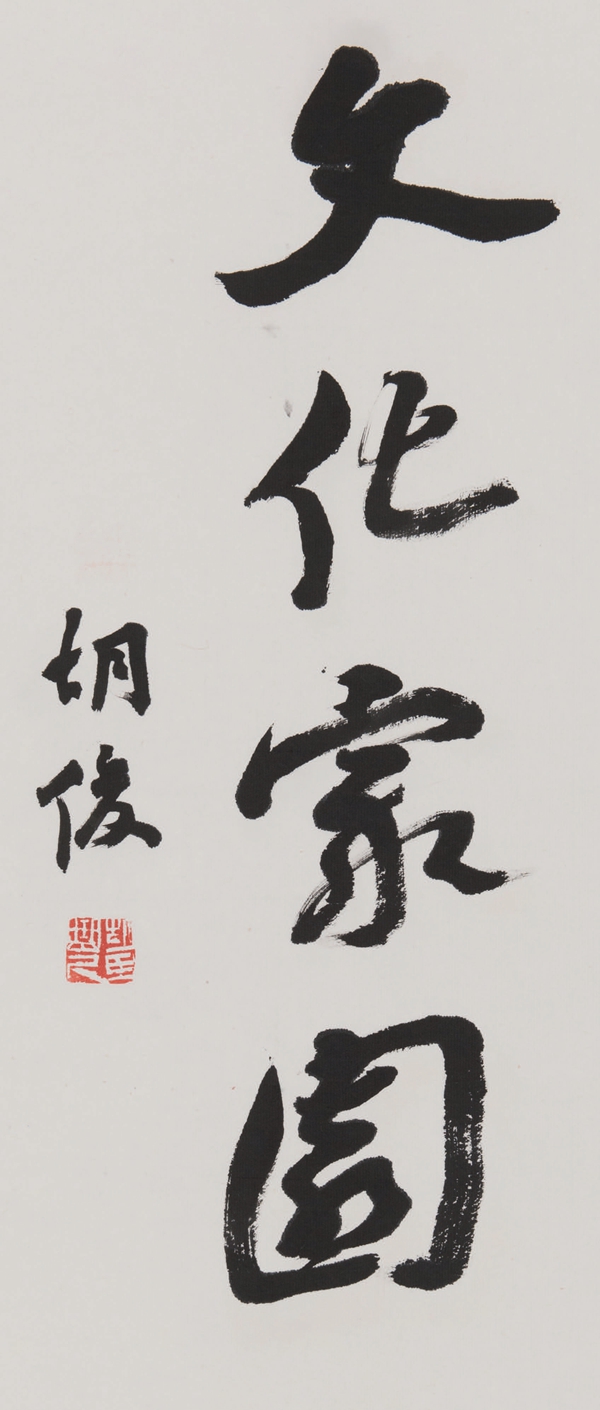 文化家園
胡俊